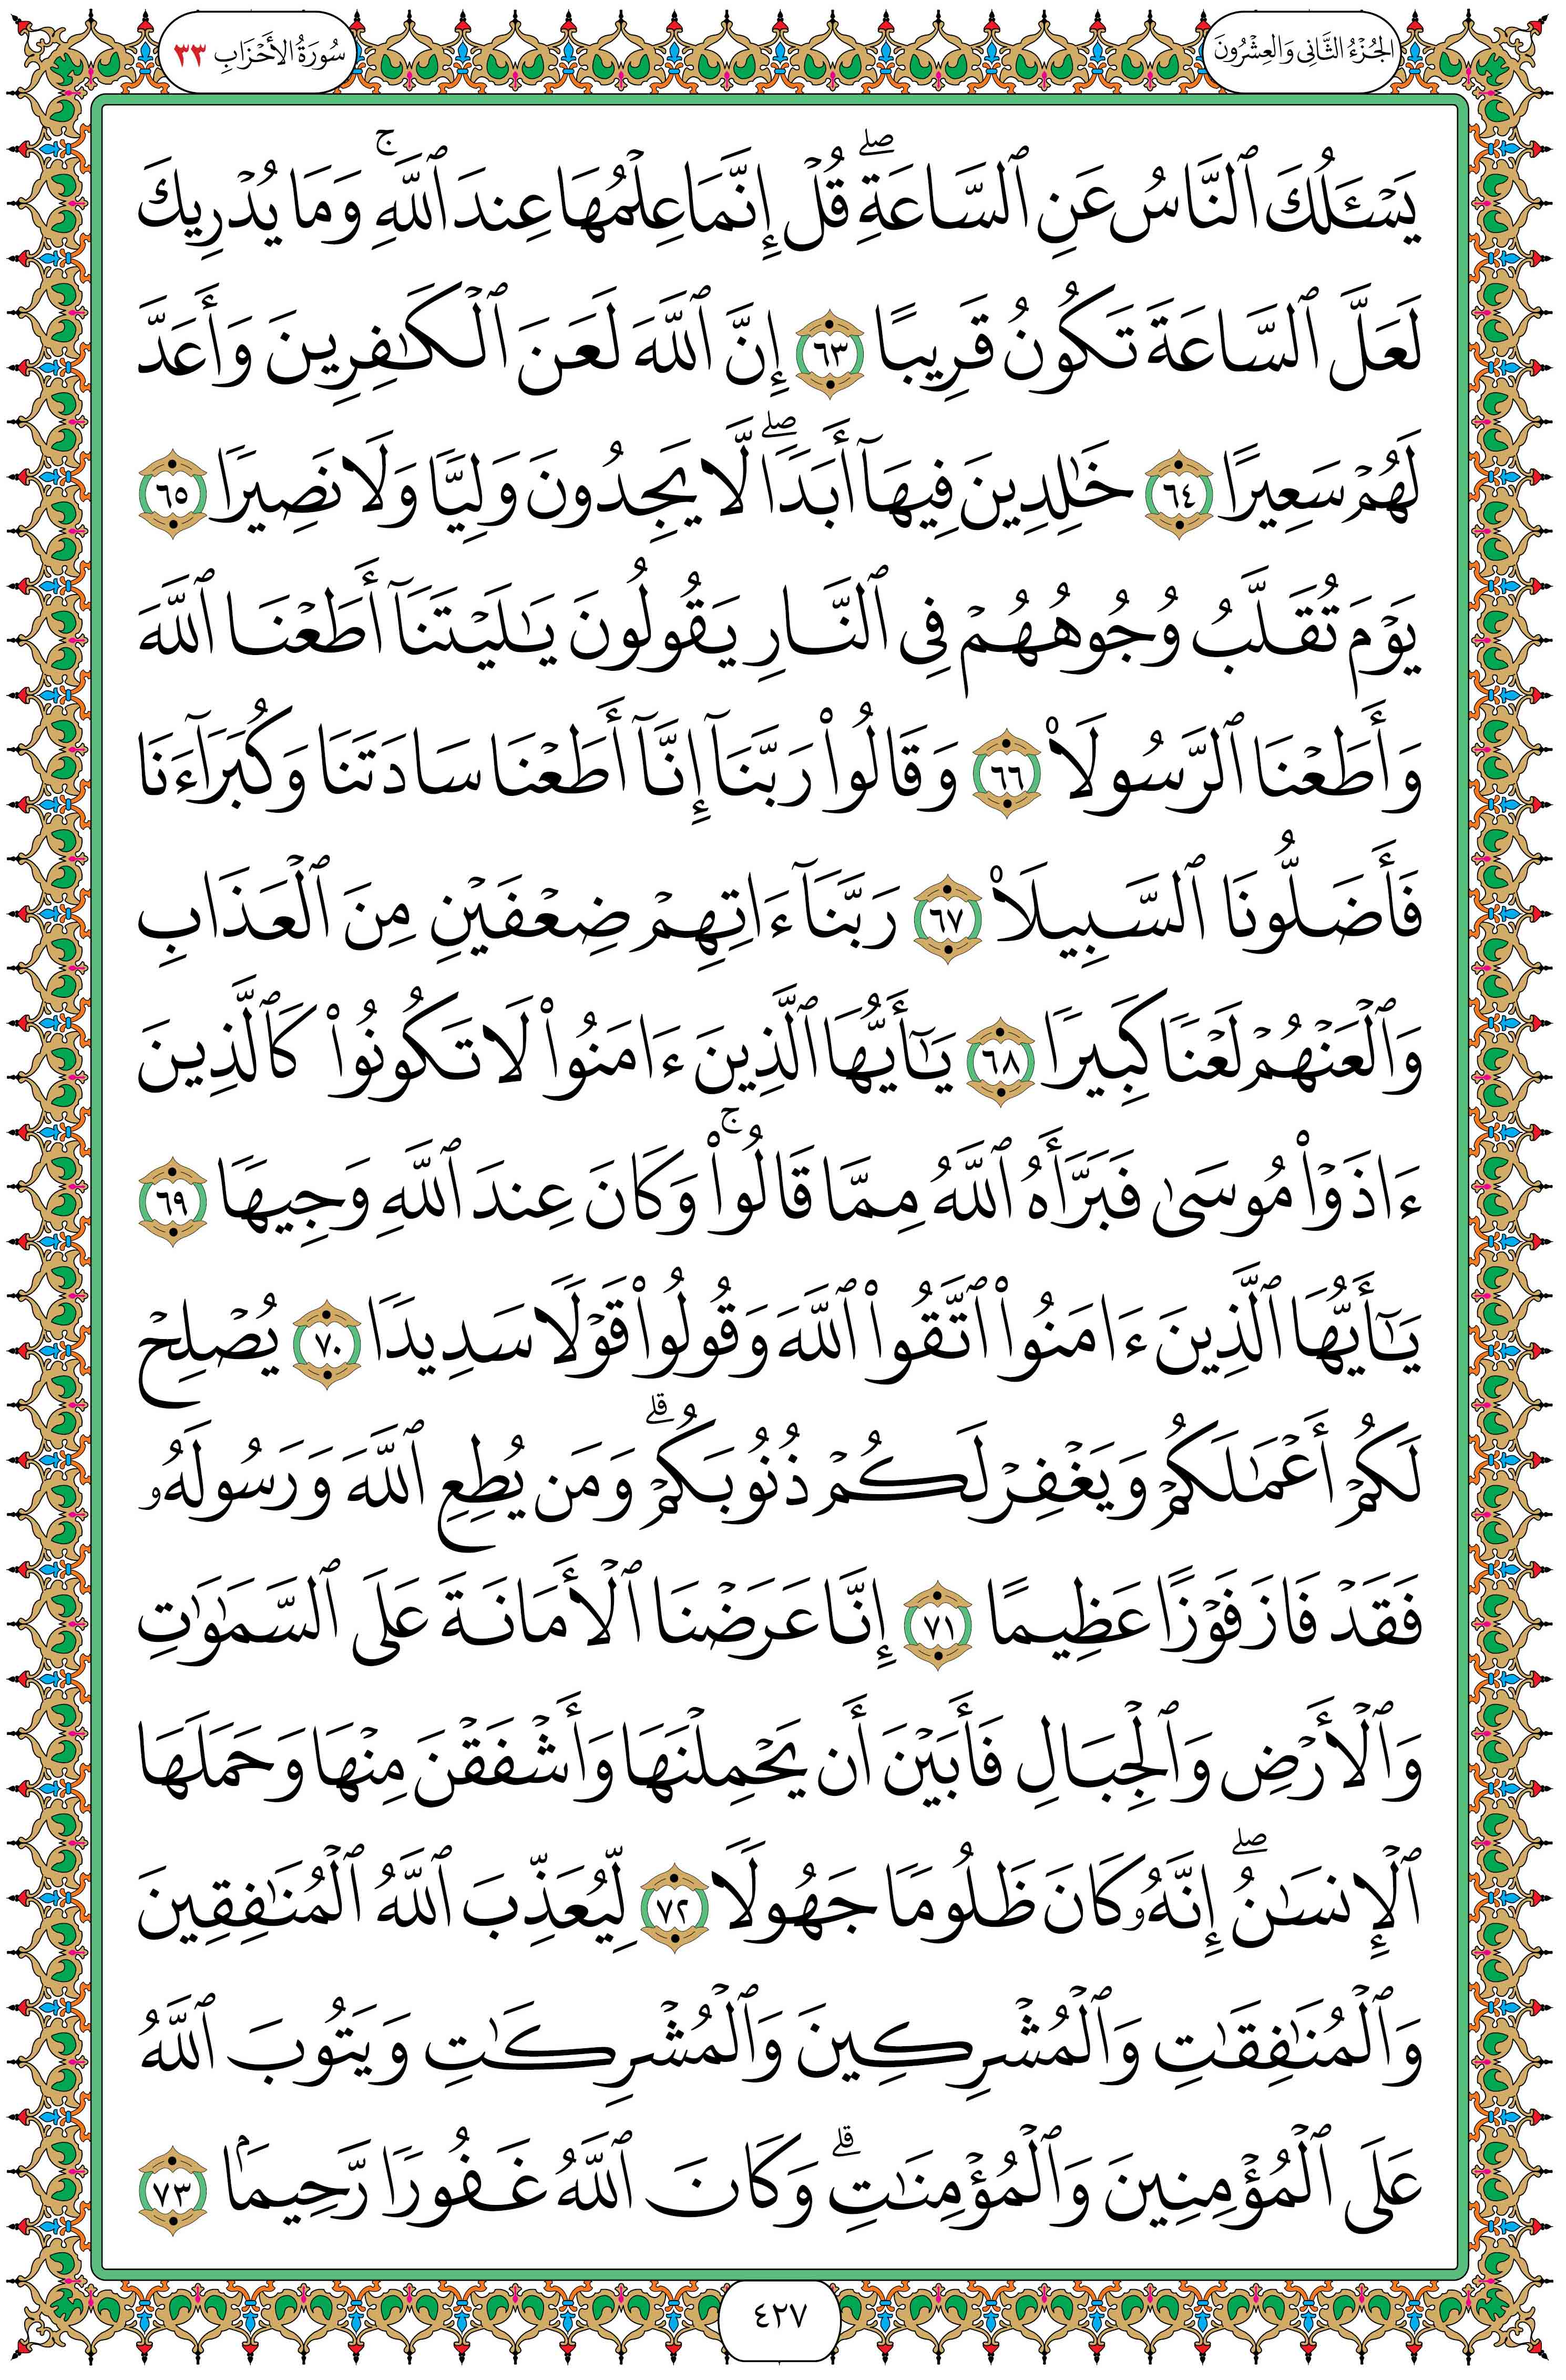 الجُزْءُ الثَّانِي وَالعِشْرُونَ
سُورَةُ الأَحْزَابِ ٣٣
يَسْـَٔلُكَ ٱلنَّاسُ عَنِ ٱلسَّاعَةِۖ قُلْ إِنَّمَا عِلْمُهَا عِندَ ٱللَّهِۚ وَمَا يُدْرِيكَ
لَعَلَّ ٱلسَّاعَةَ تَكُونُ قَرِيبًا ٦٣ إِنَّ ٱللَّهَ لَعَنَ ٱلْكَٰفِرِينَ وَأَعَدَّ
لَهُمْ سَعِيرًا ٦٤ خَٰلِدِينَ فِيهَآ أَبَدًاۖ لَّا يَجِدُونَ وَلِيًّا وَلَا نَصِيرًا ٦٥
يَوْمَ تُقَلَّبُ وُجُوهُهُمْ فِى ٱلنَّارِ يَقُولُونَ يَٰلَيْتَنَآ أَطَعْنَا ٱللَّهَ
وَأَطَعْنَا ٱلرَّسُولَا۠ ٦٦ وَقَالُوا۟ رَبَّنَآ إِنَّآ أَطَعْنَا سَادَتَنَا وَكُبَرَآءَنَا
فَأَضَلُّونَا ٱلسَّبِيلَا۠ ٦٧ رَبَّنَآ ءَاتِهِمْ ضِعْفَيْنِ مِنَ ٱلْعَذَابِ
وَٱلْعَنْهُمْ لَعْنًا كَبِيرًا ٦٨ يَٰٓأَيُّهَا ٱلَّذِينَ ءَامَنُوا۟ لَا تَكُونُوا۟ كَٱلَّذِينَ
ءَاذَوْا۟ مُوسَىٰ فَبَرَّأَهُ ٱللَّهُ مِمَّا قَالُوا۟ۚ وَكَانَ عِندَ ٱللَّهِ وَجِيهًا ٦٩
يَٰٓأَيُّهَا ٱلَّذِينَ ءَامَنُوا۟ ٱتَّقُوا۟ ٱللَّهَ وَقُولُوا۟ قَوْلًا سَدِيدًا ٧٠ يُصْلِحْ
لَكُمْ أَعْمَٰلَكُمْ وَيَغْفِرْ لَكُمْ ذُنُوبَكُمْۗ وَمَن يُطِعِ ٱللَّهَ وَرَسُولَهُۥ
فَقَدْ فَازَ فَوْزًا عَظِيمًا ٧١ إِنَّا عَرَضْنَا ٱلْأَمَانَةَ عَلَى ٱلسَّمَٰوَٰتِ
وَٱلْأَرْضِ وَٱلْجِبَالِ فَأَبَيْنَ أَن يَحْمِلْنَهَا وَأَشْفَقْنَ مِنْهَا وَحَمَلَهَا
ٱلْإِنسَٰنُۖ إِنَّهُۥ كَانَ ظَلُومًا جَهُولًا ٧٢ لِّيُعَذِّبَ ٱللَّهُ ٱلْمُنَٰفِقِينَ
وَٱلْمُنَٰفِقَٰتِ وَٱلْمُشْرِكِينَ وَٱلْمُشْرِكَٰتِ وَيَتُوبَ ٱللَّهُ
عَلَى ٱلْمُؤْمِنِينَ وَٱلْمُؤْمِنَٰتِۗ وَكَانَ ٱللَّهُ غَفُورًا رَّحِيمًۢا ٧٣
٤٢٧